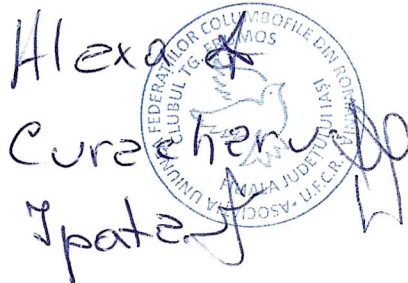 Alexa
Curecheru
Ipate
ASOCIAȚIA UNIUNII FEDERAȚIILOR COLUMBOFILE DIN ROMÂNIA
CLUBUL TG. FRUMOS
FILIALA JUDEȚULUI IAȘI
U.F.C.R.